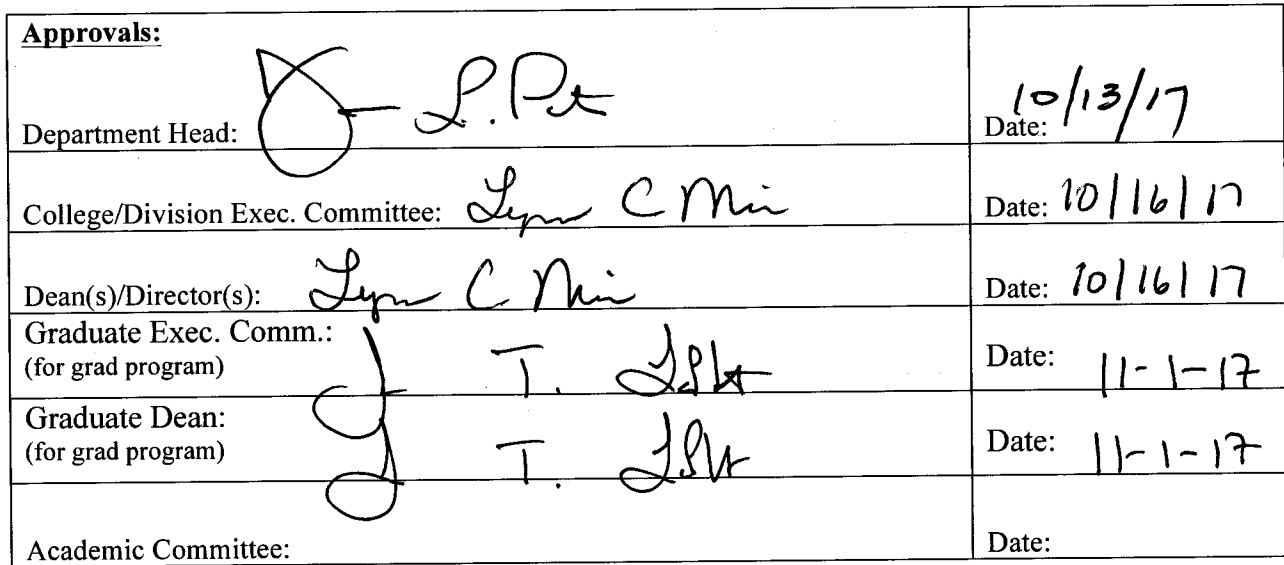 Approvals:
Department Head: L. Date: 10/13/17
College/Division Exec. Committee: Lynn C Date: 10/16/17
Dean(s)/Director(s): Lynn C Date: 10/16/17
Graduate Exec. Comm.:
(for grad program) T. Date: 11-1-17
Graduate Dean:
(for grad program) T. Date: 11-1-17
Academic Committee: Date: